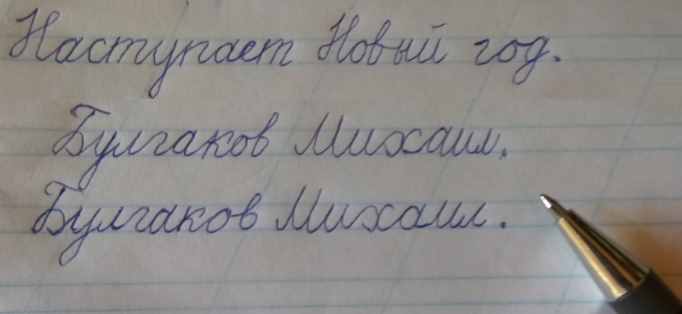 Наступает Новый год.
Булгаков Михаил.
Булгаков Михаил.